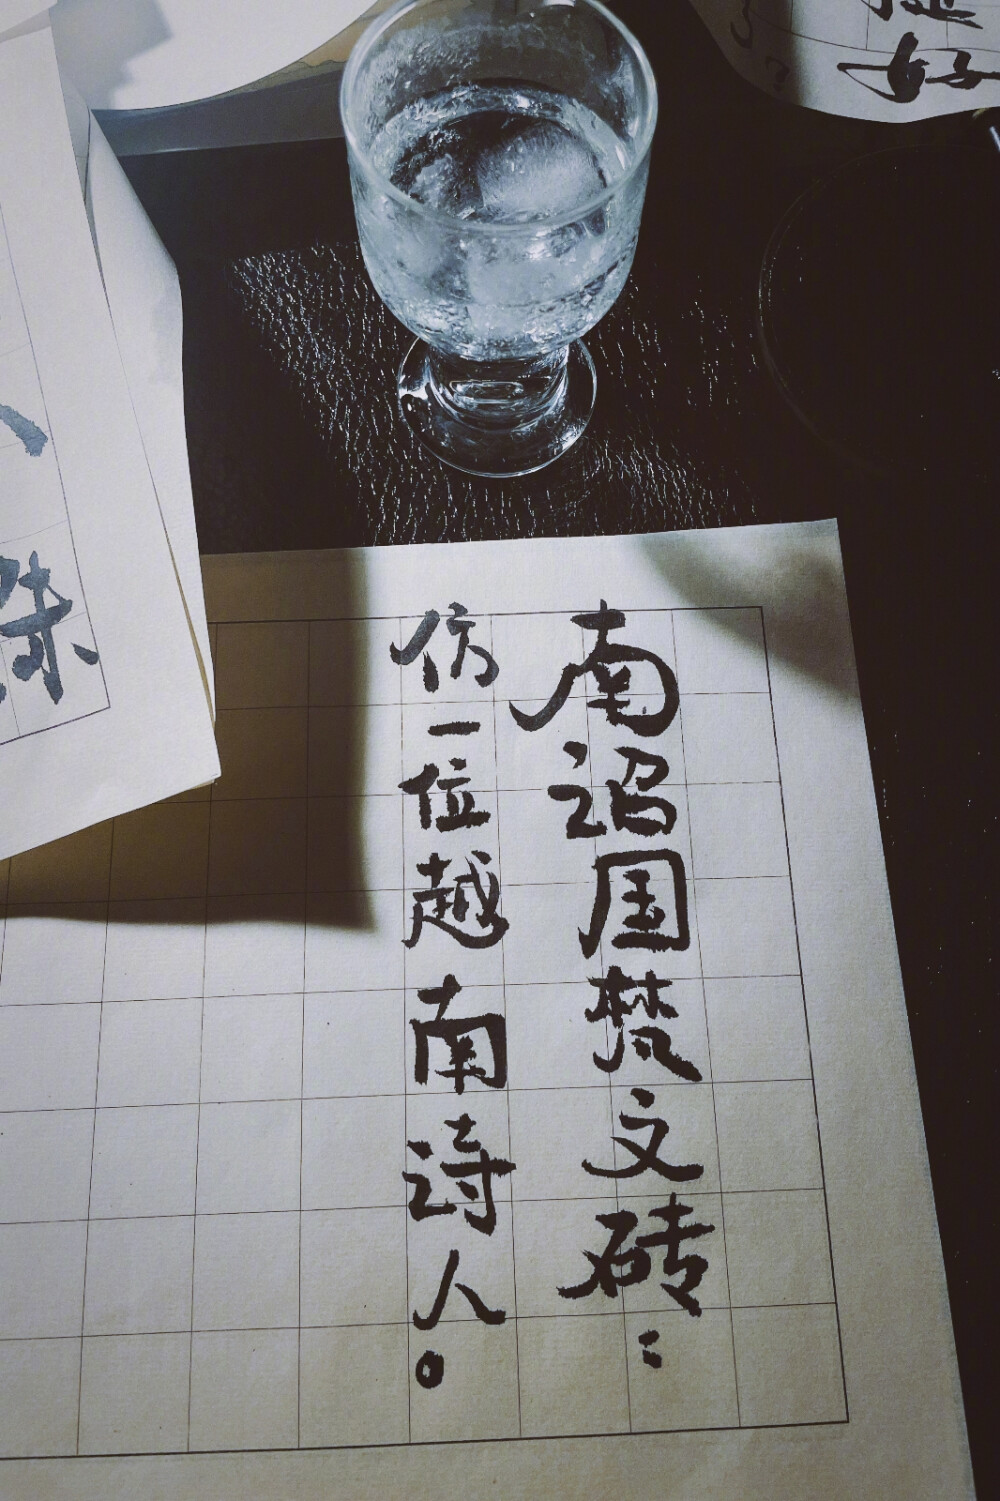 南诏国梵文砖：
仿一位越南诗人。
好